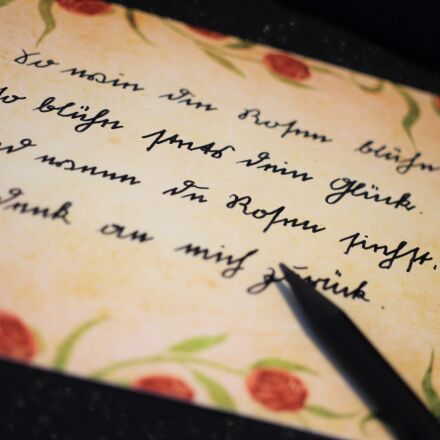 So wie die Rosen blühn
so blühe stets dein Glück.
und wenn du Rosen siehst.
denk an mich zurück.